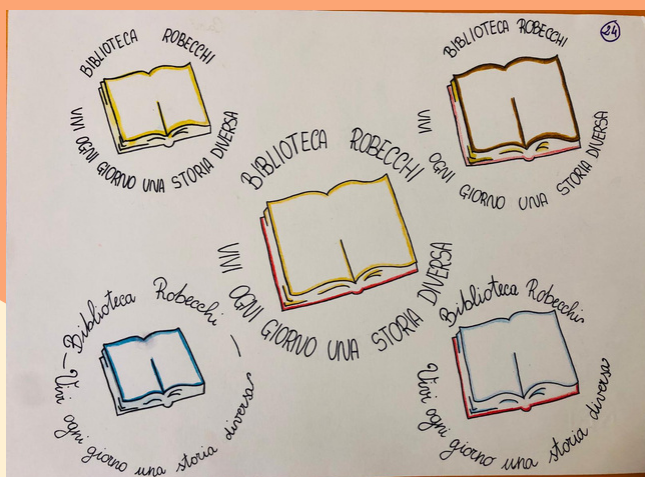 BIBLIOTECA ROBECCHI
VIVI OGNI GIORNO UNA STORIA DIVERSA
BIBLIOTECA ROBECCHI
VIVI OGNI GIORNO UNA STORIA DIVERSA
24
BIBLIOTECA ROBECCHI
VIVI OGNI GIORNO UNA STORIA DIVERSA
Biblioteca Robecchi
Vivi ogni giorno una storia diversa
Biblioteca Robecchi
Vivi ogni giorno una storia diversa